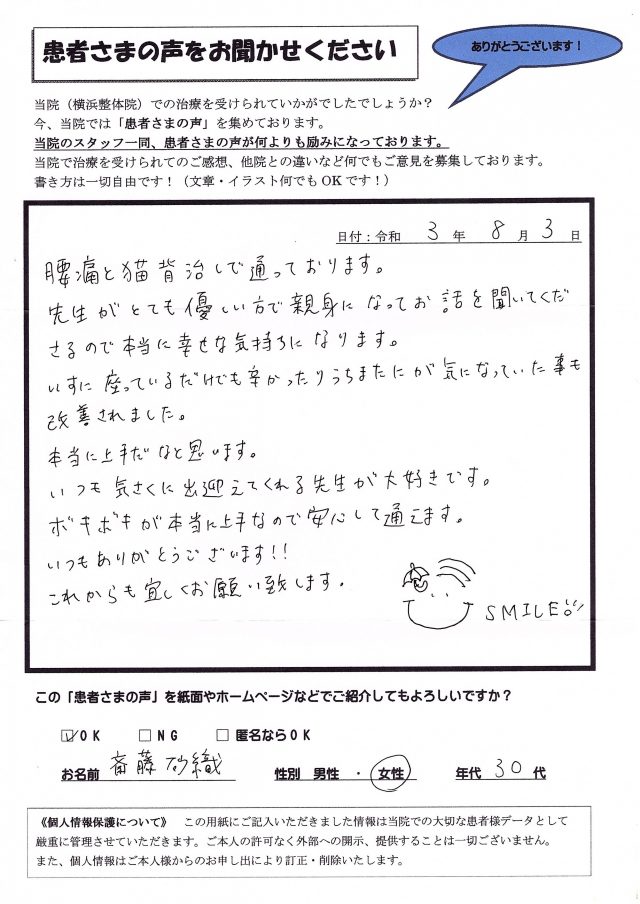 患者さまの声をお聞かせください
ありがとうございます！
当院（横浜整体院）での治療を受けられていかがでしたでしょうか？
今、当院では「患者さまの声」を集めております。
当院のスタッフ一同、患者さまの声が何よりも励みになっております。
当院で治療を受けられてのご感想、他院との違いなど何でもご意見を募集しております。
書き方は一切自由です！（文章・イラスト何でもOKです！）
日付：令和 3 年 8 月 3 日
腰痛と猫背治しで通っております。
先生がとても優しい方で親身になってお話を聞いてくだ
さるので本当に幸せな気持ちになります。
いすに座っているだけでも辛かったりうちまたにが気になっていた事も
改善されました。
本当に上手だなと思います。
いつも気さくに出迎えてくれる先生が大好きです。
ボキボキが本当に上手なので安心して通えます。
いつもありがとうございます!!
これからも宜しくお願い致します。
SMILE
この「患者さまの声」を紙面やホームページなどでご紹介してもよろしいですか？
☑OK □NG □匿名ならOK
お名前 斎藤砂織 性別 男性 ・ 女性 年代 30 代
《個人情報保護について》 この用紙にご記入いただきました情報は当院での大切な患者様データとして
厳重に管理させていただきます。ご本人の許可なく外部への開示、提供することは一切ございません。
また、個人情報はご本人様からのお申し出により訂正・削除いたします。